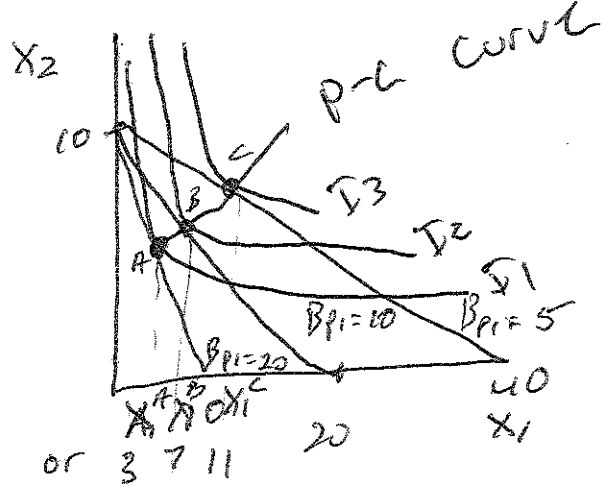 X2
p-c curve
10
C
B
A
I3
I2
I1
Bp1=10
Bp1=5
Bp1=20
X1^A X1^B 10 X1^C
20
40
X1
or 3 7 11